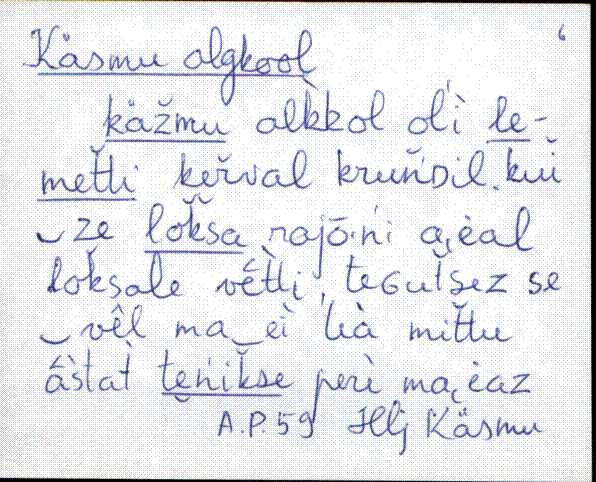 6
Käsmu algkool
kǟžmu alk̀kol ol'ì le-
met̆ti kĕrval kruǹDil. kuĭ
‿ze lok̆sa rajō·n'i a,èal
lok̆sale vét̆ti, teGut̆sez se
‿vêl ma‿eì t́eà mit̆tu
āstat̀ teńik̆se perì ma,èaz
A.P.59 Hlj Käsmu